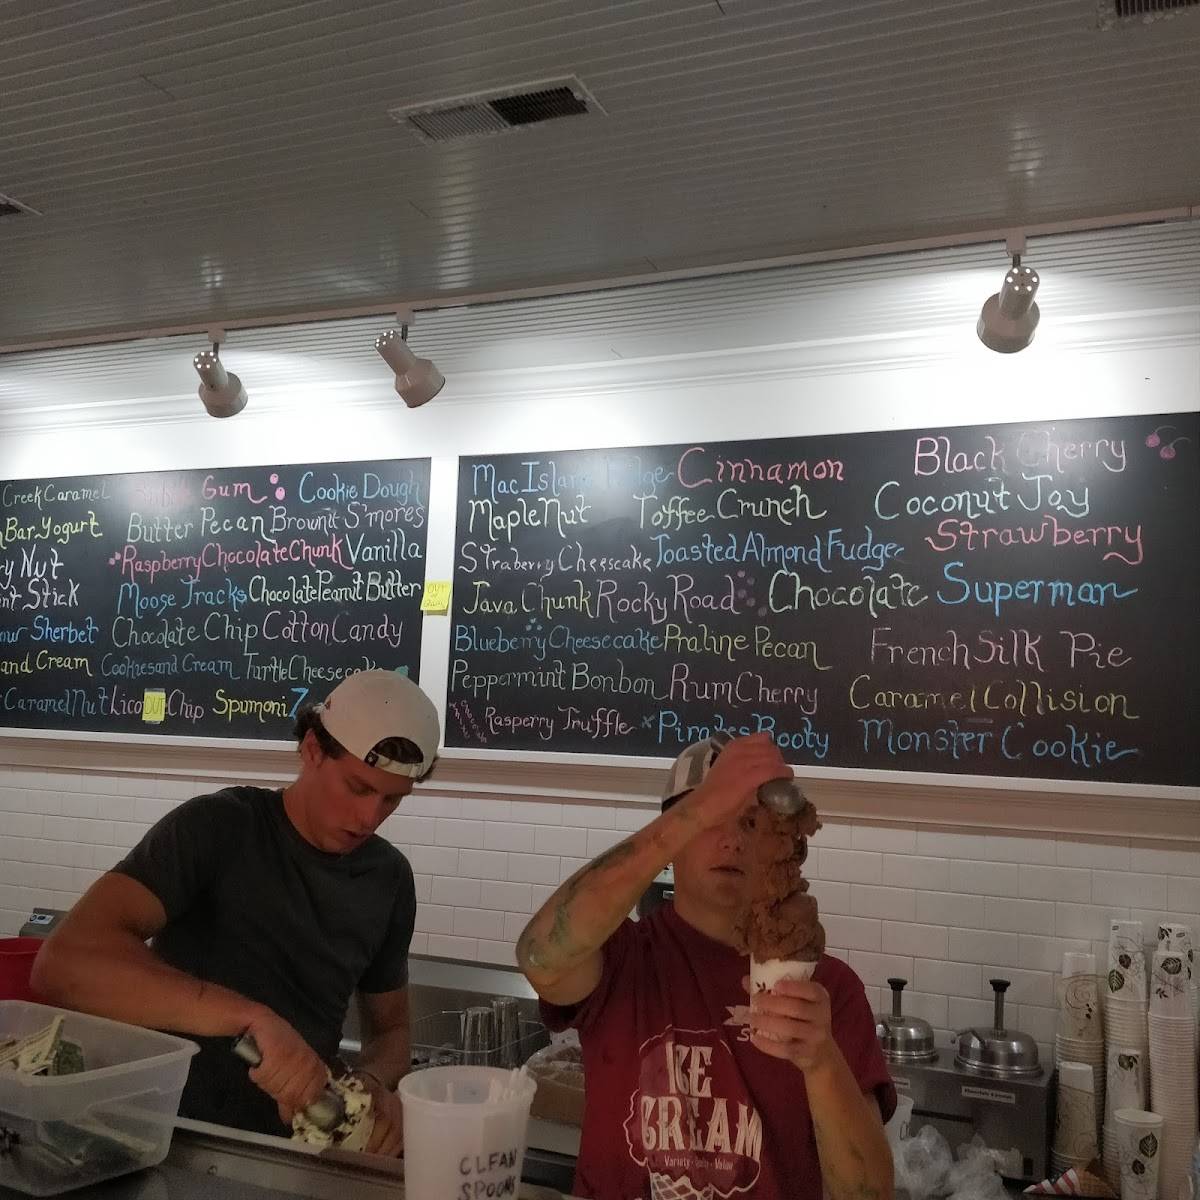 Creek Caramel
Gum
Cookie Dough
Bar Yogurt
Butter Pecan
Brownie S'mores
y Nut
Raspberry Chocolate Chunk
Vanilla
Stick
Moose Tracks
Chocolate Peanut Butter
Sherbet
Chocolate Chip
Cotton Candy
and Cream
Cookies and Cream
Turtle Cheesecake
Caramel Nut
OUT
Chip
Spumoni
OUT
Mac Island Fudge
Cinnamon
Black Cherry
Maple Nut
Toffee Crunch
Coconut Joy
Straberry Cheescake
Toasted Almond Fudge
Strawberry
Java Chunk
Rocky Road
Chocolate
Superman
Blueberry Cheesecake
Praline Pecan
French Silk Pie
Peppermint Bonbon
Rum Cherry
Caramel Collision
Rasperry Truffle
Pirates Booty
Monster Cookie
ICE
CREAM
CLEAN
SPOONS